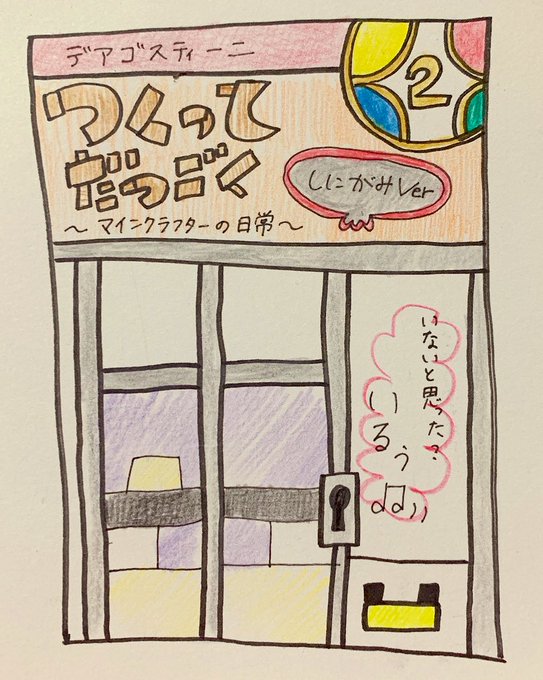 デアゴスティーニ
2
つくって
だつごく
～マインクラフターの日常～
しにがみVer
いないと思った？
いるぅ♫♪))